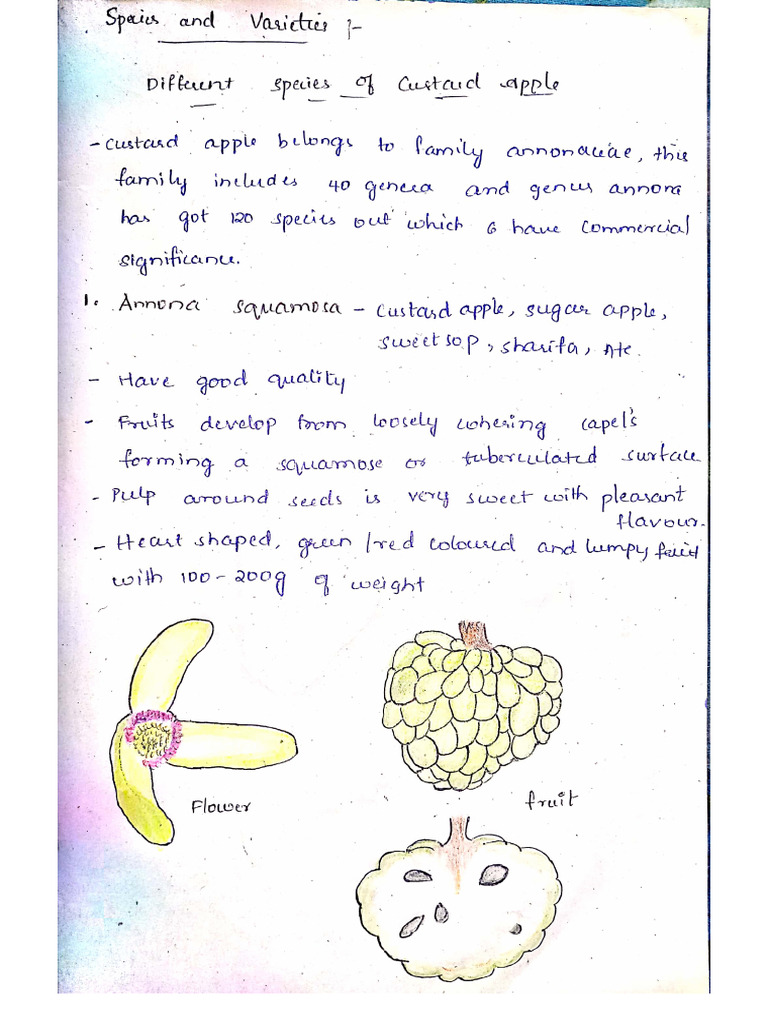 Species and Varieties :-
Different species of Custard apple
- Custard apple belongs to family annonaceae, this
family includes 40 genera and genus annona
has got 120 species out which 6 have commercial
significance.
1. Annona squamosa - Custard apple, sugar apple,
sweet sop, sharifa, Ate.
- Have good quality
- Fruits develop from loosely cohering capel's
forming a squamose or tuberculated surface
- Pulp around seeds is very sweet with pleasant
flavour.
- Heart shaped, green/red coloured and lumpy fruit
with 100-200g of weight
Flower
fruit